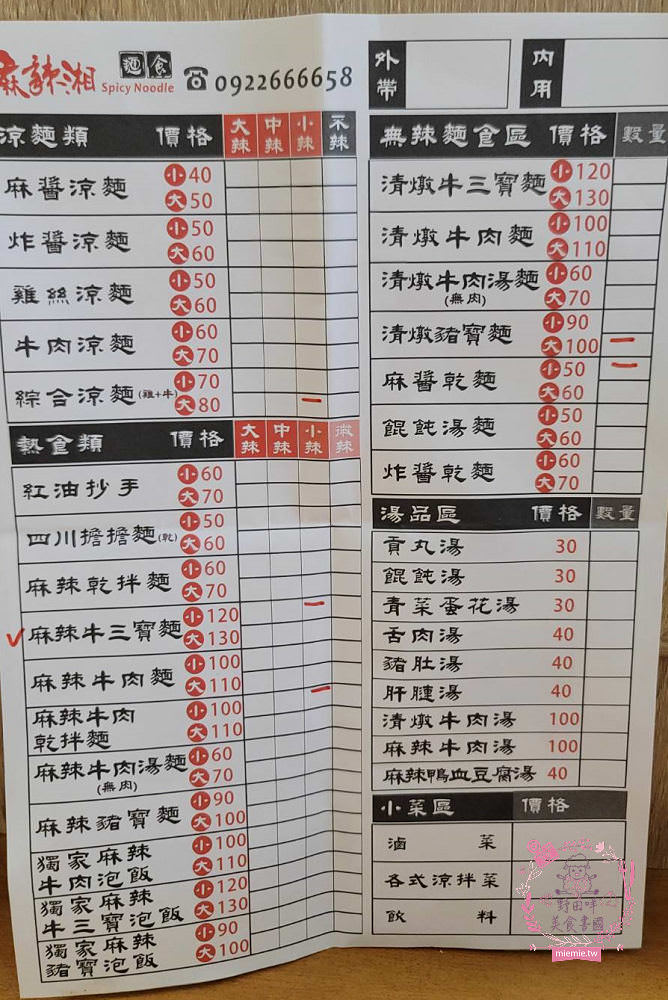 麻辣湘 麵食
Spicy Noodle
☎0922666658
外帶
內用
涼麵類 價格 大辣 中辣 小辣 不辣
麻醬涼麵 小40
大50
炸醬涼麵 小50
大60
雞絲涼麵 小50
大60
牛肉涼麵 小60
大70
綜合涼麵(雞+牛) 小70
大80
熱食類 價格 大辣 中辣 小辣 微辣
紅油抄手 小60
大70
四川擔擔麵(乾) 小50
大60
麻辣乾拌麵 小60
大70
麻辣牛三寶麵 小120
大130
麻辣牛肉麵 小100
大110
麻辣牛肉 小100
乾拌麵 大110
麻辣牛肉湯麵 小60
(無肉) 大70
麻辣豬寶麵 小90
大100
獨家麻辣 小100
牛肉泡飯 大110
獨家麻辣 小120
牛三寶泡飯 大130
獨家麻辣 小90
豬寶泡飯 大100
無辣麵食區 價格 數量
清燉牛三寶麵 小120
大130
清燉牛肉麵 小100
大110
清燉牛肉湯麵 小60
(無肉) 大70
清燉豬寶麵 小90
大100
麻醬乾麵 小50
大60
餛飩湯麵 小50
大60
炸醬乾麵 小60
大70
湯品區 價格 數量
貢丸湯 30
餛飩湯 30
青菜蛋花湯 30
舌肉湯 40
豬肚湯 40
肝腱湯 40
清燉牛肉湯 100
麻辣牛肉湯 100
麻辣鴨血豆腐湯 40
小菜區 價格
滷菜
各式涼拌菜
飲料
野田咩
美食書國
miemie.tw